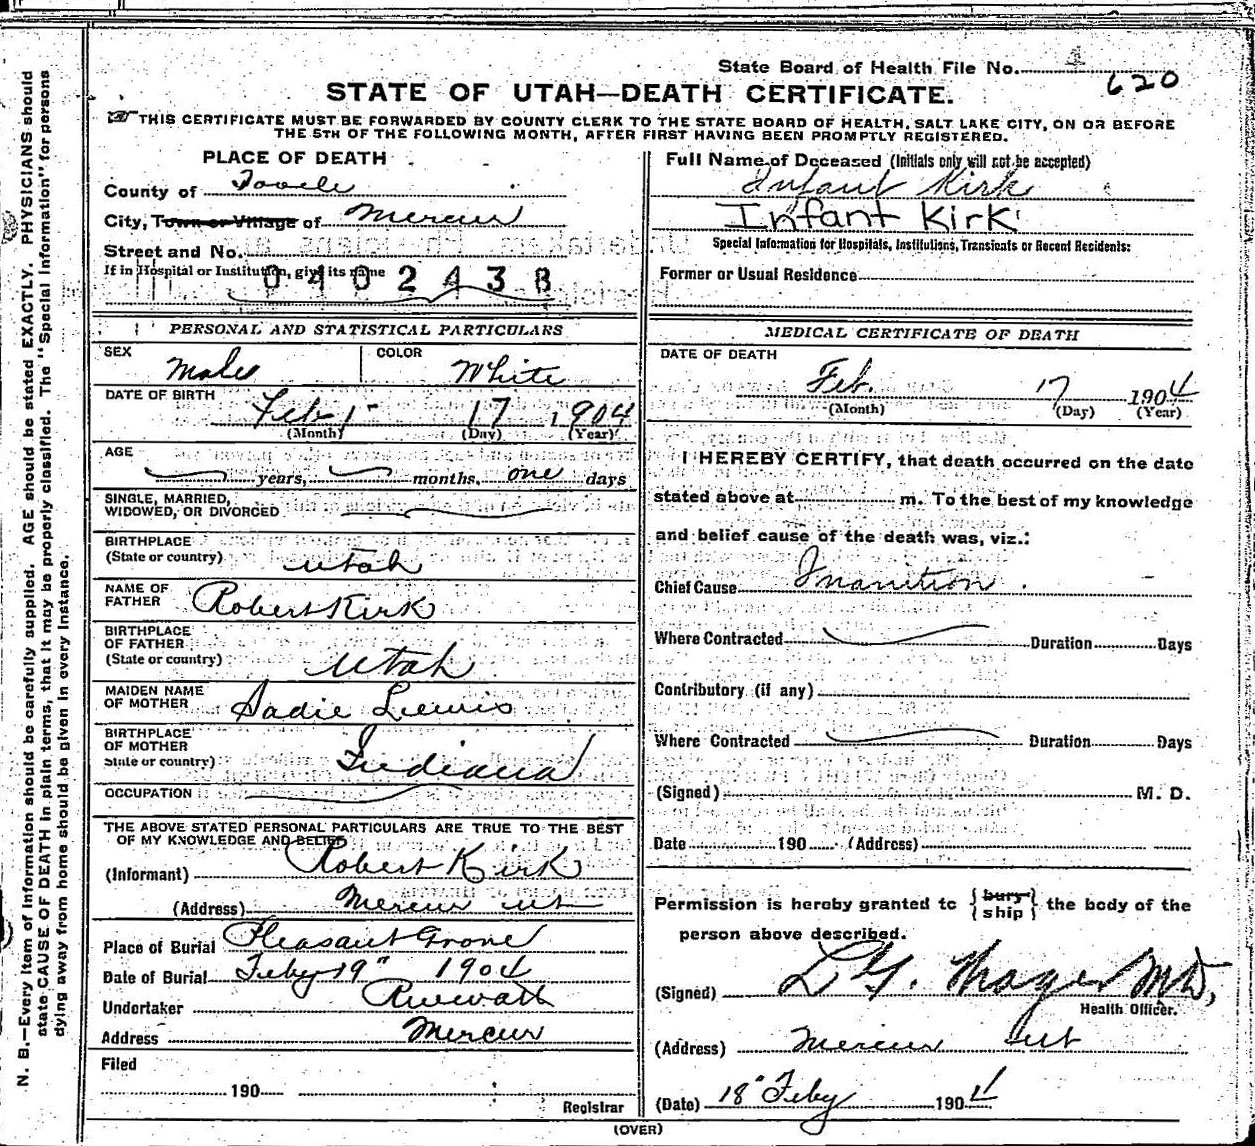 State Board of Health File No. 620
STATE OF UTAH—DEATH CERTIFICATE.
THIS CERTIFICATE MUST BE FORWARDED BY COUNTY CLERK TO THE STATE BOARD OF HEALTH, SALT LAKE CITY, ON OR BEFORE
THE 5TH OF THE FOLLOWING MONTH, AFTER FIRST HAVING BEEN PROMPTLY REGISTERED.
PLACE OF DEATH
County of Tooele
City, Town or Village of Mercur
Street and No.
If in Hospital or Institution, give its name
0402438
PERSONAL AND STATISTICAL PARTICULARS
SEX Male COLOR White
DATE OF BIRTH
Feb 17 1904
(Month) (Day) (Year)
AGE
years, months, one days
SINGLE, MARRIED,
WIDOWED, OR DIVORCED
BIRTHPLACE
(State or country) Utah
NAME OF
FATHER Robert Kirk
BIRTHPLACE
OF FATHER
(State or country) Utah
MAIDEN NAME
OF MOTHER Sadie Lewis
BIRTHPLACE
OF MOTHER
State or country) Indiana
OCCUPATION
THE ABOVE STATED PERSONAL PARTICULARS ARE TRUE TO THE BEST
OF MY KNOWLEDGE AND BELIEF
(Informant) Robert Kirk
(Address) Mercur Ut
Place of Burial Pleasant Grove
Date of Burial Feby 19" 1904
Undertaker
Address Mercur
Filed
190
Registrar
Full Name of Deceased (Initials only will not be accepted)
Infant Kirk
Infant Kirk
Special Information for Hospitals, Institutions, Transients or Recent Residents:
Former or Usual Residence
MEDICAL CERTIFICATE OF DEATH
DATE OF DEATH
Feb. 17 1904
(Month) (Day) (Year)
I HEREBY CERTIFY, that death occurred on the date
stated above at m. To the best of my knowledge
and belief cause of the death was, viz.:
Chief Cause Inanition.
Where Contracted Duration Days
Contributory (if any)
Where Contracted Duration Days
(Signed) M. D.
Date 190 (Address)
Permission is hereby granted to {bury
ship} the body of the
person above described.
(Signed) M.D,
Health Officer.
(Address) Mercur Ut
(Date) 18" Feby 1904
(OVER)
N. B.—Every item of information should be carefully supplied. AGE should be stated EXACTLY. PHYSICIANS should
state CAUSE OF DEATH in plain terms, that it may be properly classified. The "Special Information" for persons
dying away from home should be given in every instance.